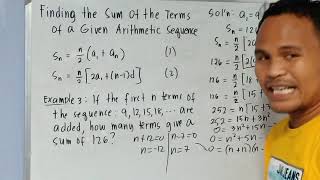 Finding the Sum of the Terms
of a Given Arithmetic Sequence
Sₙ = n/2 (a₁ + aₙ) (1)
Sₙ = n/2 [2a₁ + (n-1)d] (2)
Example 3: If the first n terms of
the sequence: 9, 12, 15, 18, ... are
added, how many terms give a
sum of 126?
n+12=0 n-7=0
n=-12 n=7
Sol'n: a₁ = 9
Sₙ = 126
Sₙ = n/2 [2
126 = n/2 [2(
126 = n/2 [
126 = n/2 [15+
252 = n[15+
252 = 15n+
0 = 3n²+15n
0 = n²+5n-
0 = (n+12)(n-
JEANS